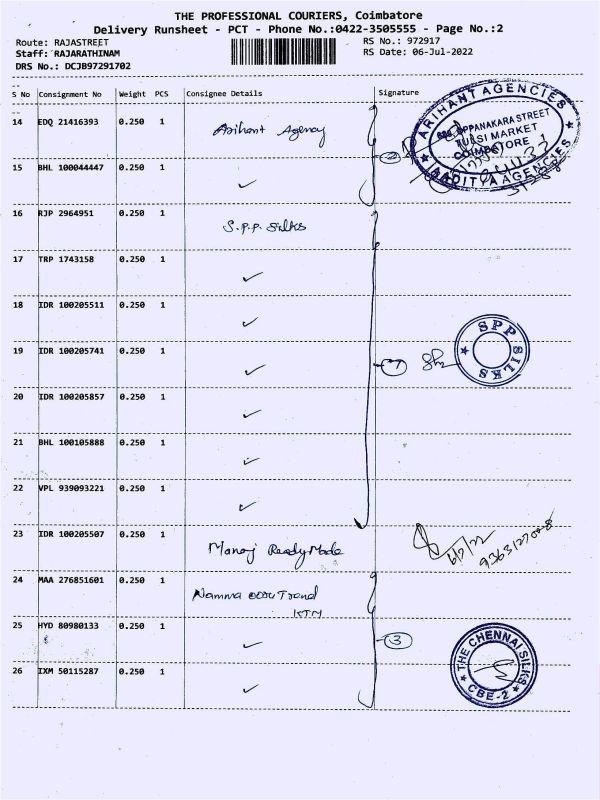 THE PROFESSIONAL COURIERS, Coimbatore
Delivery Runsheet - PCT - Phone No.:0422-3505555 - Page No.:2
Route: RAJASTREET
Staff: RAJARATHINAM
DRS No.: DCJB97291702
RS No.: 972917
RS Date: 06-Jul-2022
S No Consignment No Weight PCS Consignee Details Signature
14 EDQ 21416393 0.250 1 Arihant Agency
2
ARIHANT AGENCIES
OPPANAKARA STREET
TULSI MARKET
COIMBATORE
AADITYA AGENCIES
15 BHL 100044447 0.250 1 ✓
16 RJP 2964951 0.250 1 S.P.P. Silks
17 TRP 1743158 0.250 1 ✓
18 IDR 100205511 0.250 1 ✓
19 IDR 100205741 0.250 1 ✓ 7
SPP SILKS
20 IDR 100205857 0.250 1 ✓
21 BHL 100105888 0.250 1 ✓
22 VPL 939093221 0.250 1 ✓
23 IDR 100205507 0.250 1 Manoj ReadyMade
6/7/22
24 MAA 276851601 0.250 1 Namma Trend
KTM
25 HYD 80980133 0.250 1 ✓ 3
THE CHENNAI SILKS
CBE-2
26 IXM 50115287 0.250 1 ✓